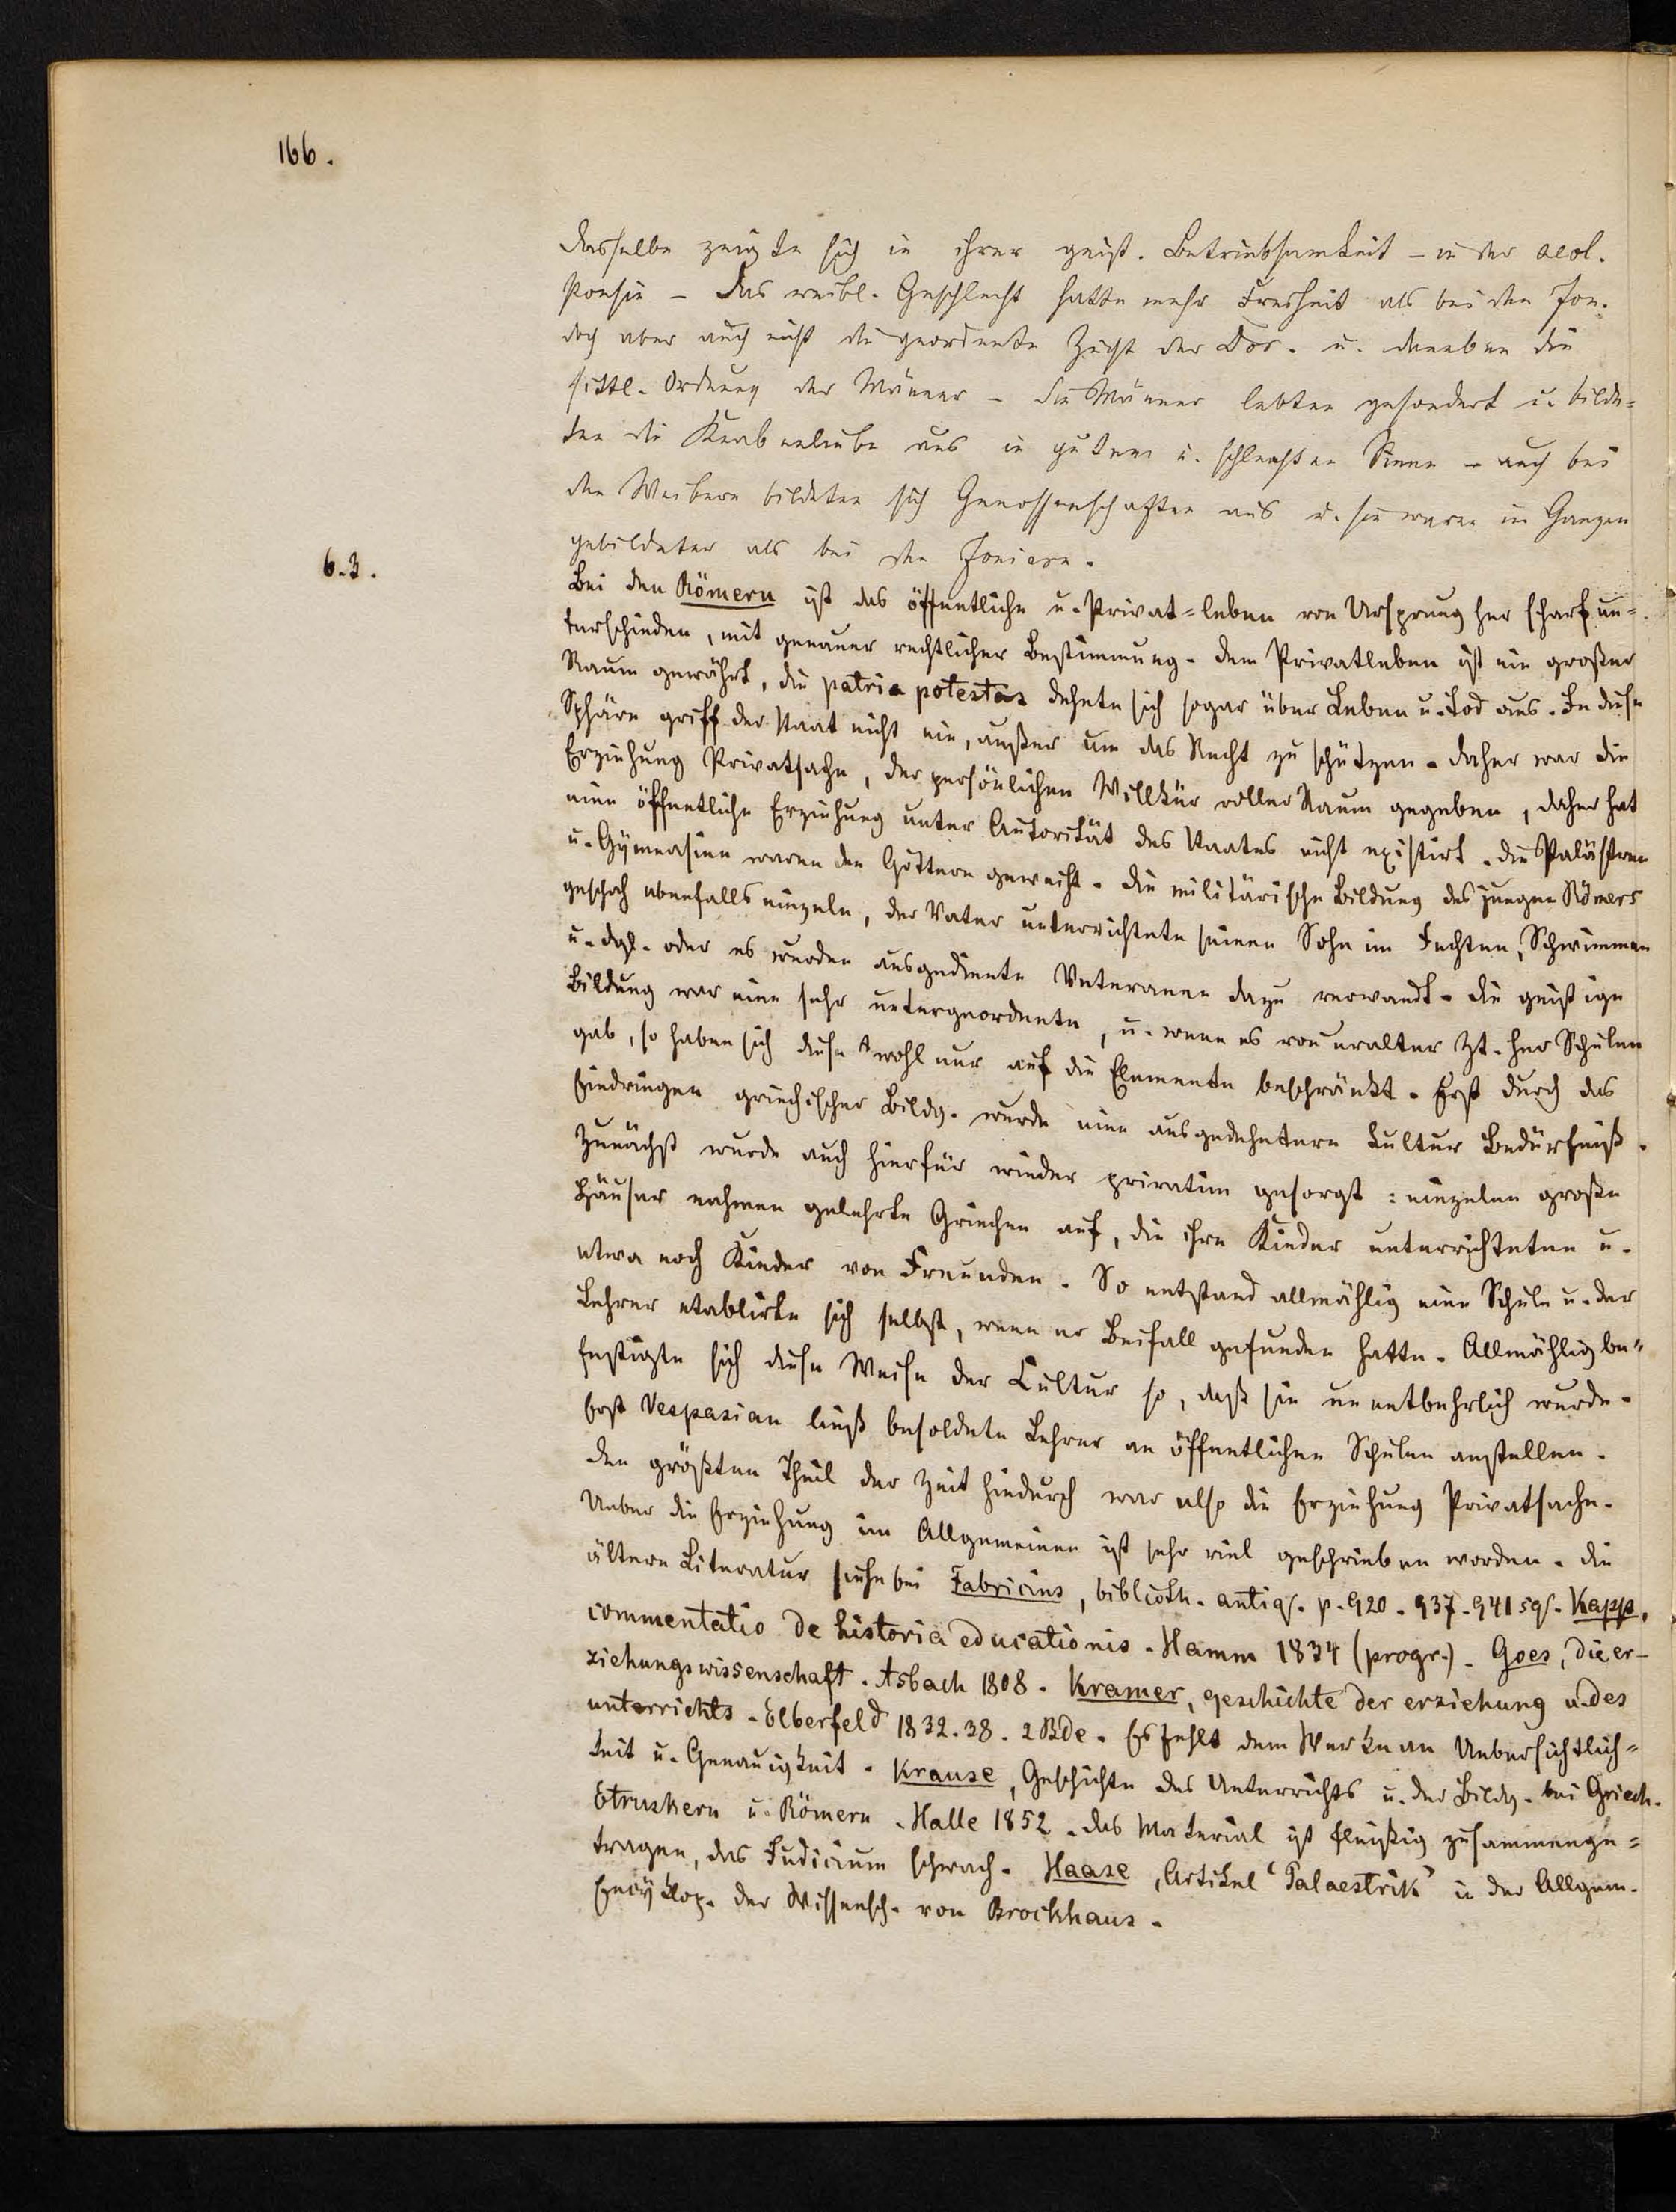 166.
dasselbe zeigte sich in ihrer geist. Betriebsamkeit – in der aeol.
Poesie – Das weibl. Geschlecht hatte mehr Freiheit als bei den Jon.
doch aber auch nicht die geordnete Zucht der Dor. u. daneben die
sittl. Ordnung der Männer – die Männer lebten gesondert u. bilde=
ten die Knabenliebe aus in gutem u. schlechten Sinne – auch bei
den Weibern bildeten sich Genossenschaften aus u. sie waren im Ganzen
gebildeter als bei den Joniern.
6.3.
Bei den Römern ist das öffentliche u. Privat=leben von Ursprung her scharf un=
terschieden, mit genauer rechtlicher Bestimmung. Dem Privatleben ist ein großer
Raum gewährt, die patria potestas dehnte sich sogar über Leben u. Tod aus. In diese
Sphäre griff der Staat nicht ein, außer um das Recht zu schützen. Daher war die
Erziehung Privatsache, der persönlichen Willkür voller Raum gegeben, daher hat
eine öffentliche Erziehung unter Autorität des Staates nicht existirt. Die Palästren
u. Gymnasien waren den Göttern geweiht. Die militärische Bildung des jungen Römers
geschah ebenfalls einzeln, der Vater unterrichtete seinen Sohn im Fechten, Schwimmen
u. dgl. oder es wurden ausgediente Veteranen dazu verwandt. Die geistige
Bildung war eine sehr untergeordnete, u. wenn es von uralter Zt. her Schulen
gab, so haben sich diese wohl nur auf die Elemente beschränkt. Erst durch das
Eindringen griechischer Bildg. wurde eine ausgedehntere Kultur Bedürfniß.
Zunächst wurde auch hierfür wieder privatim gesorgt: einzelne große
Häuser nahmen gelehrte Griechen auf, die ihre Kinder unterrichteten u.
etwa noch Kinder von Freunden. So entstand allmählig eine Schule u. der
Lehrer etablirte sich selbst, wenn er Beifall gefunden hatte. Allmählig be=
festigte sich diese Weise der Cultur so, daß sie unentbehrlich wurde.
Erst Vespasian ließ besoldete Lehrer an öffentlichen Schulen anstellen.
Den größten Theil der Zeit hindurch war also die Erziehung Privatsache.
Ueber die Erziehung im Allgemeinen ist sehr viel geschrieben worden. Die
ältere Literatur siehe bei Fabricius, biblioth. antiq. p. 920. 937. 941 sq. Kapp,
commentatio de historia educationis. Hamm 1834 (progr.). Goes, die er-
ziehungswissenschaft. Asbach 1808. Kramer, geschichte der erziehung u. des
unterrichts. Elberfeld 1832. 38. 2 Bde. Es fehlt dem Werke an Uebersichtlich=
keit u. Genauigkeit. Krause, Geschichte des Unterrichts u. der Bildg. bei Griech.
Etruskern u. Römern. Halle 1852. Das Material ist fleißig zusammenge=
tragen, das Judicium schwach. Haase, Artikel 'Palaestrik' in der Allgem.
Encyklop. der Wissensch. von Brockhaus.